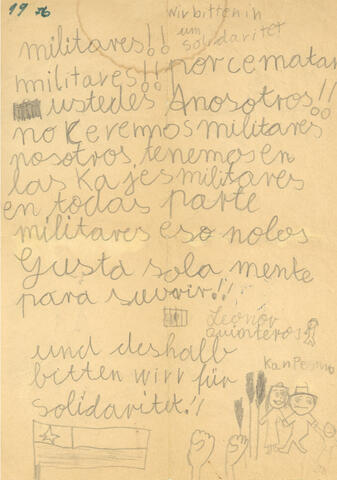 19 76
wir bitten ih
um
solidaritet
militares!!
militares!! por ce matan
ustedes Anosotros!!
no Keremos militares
nosotros tenemos en
las Kajes militares
en todas parte
militares eso nolos
Gusta sola mente
para suvrir!!
Leonor
quinteros
und deshalb
bitten wirr für
Solidaritet!!
Kanpesino